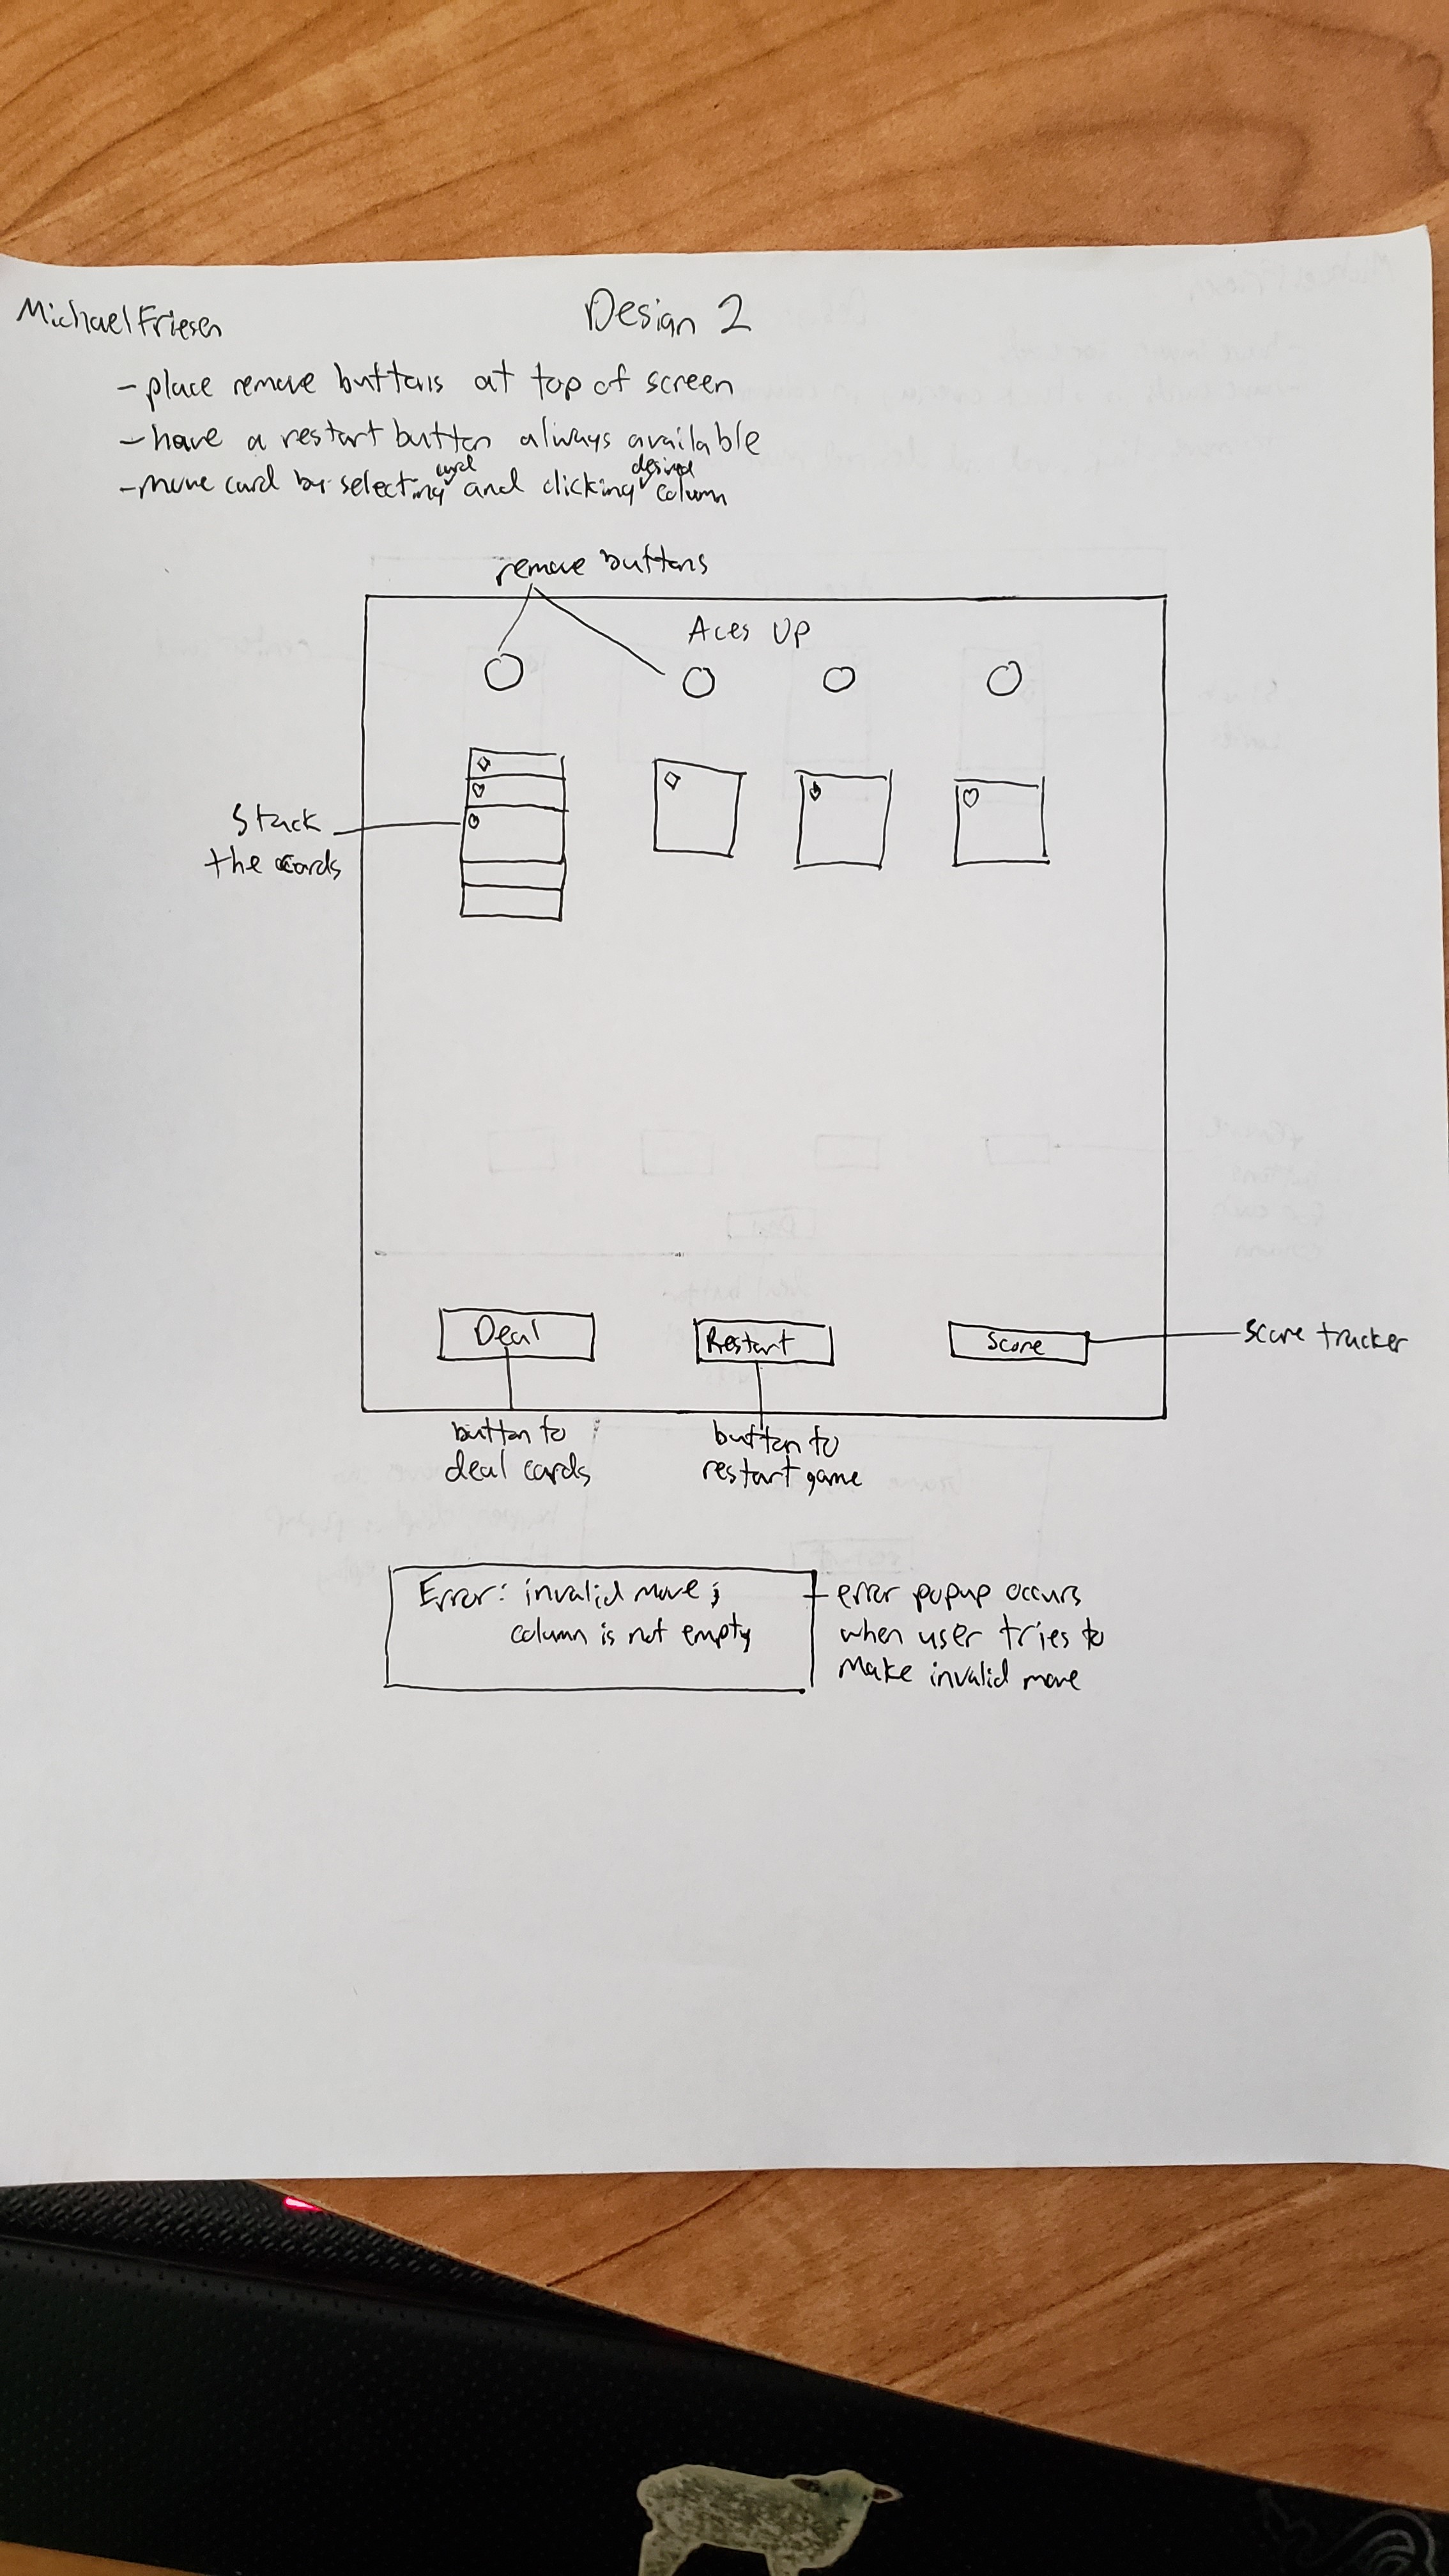 Michael Friesen
Design 2
- place remove buttons at top of screen
- have a restart button always available
- move card by selecting card and clicking desired column
remove buttons
Aces Up
Stack
the cards
Deal
Restart
Score
score tracker
button to
deal cards
button to
restart game
Error: invalid move;
column is not empty
error popup occurs
when user tries to
make invalid move